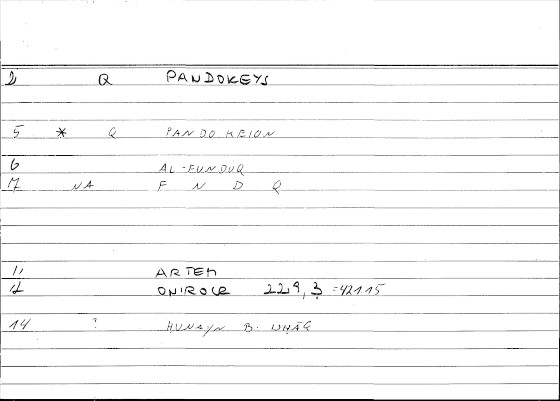 2 Q PANDOKEYS
5 * Q PANDOKEION
6 AL-FUNDUQ
17 NA F N D Q
11 ARTEM
12 ONIROCR 229,3 =42115
14 ? HUNAYN B.